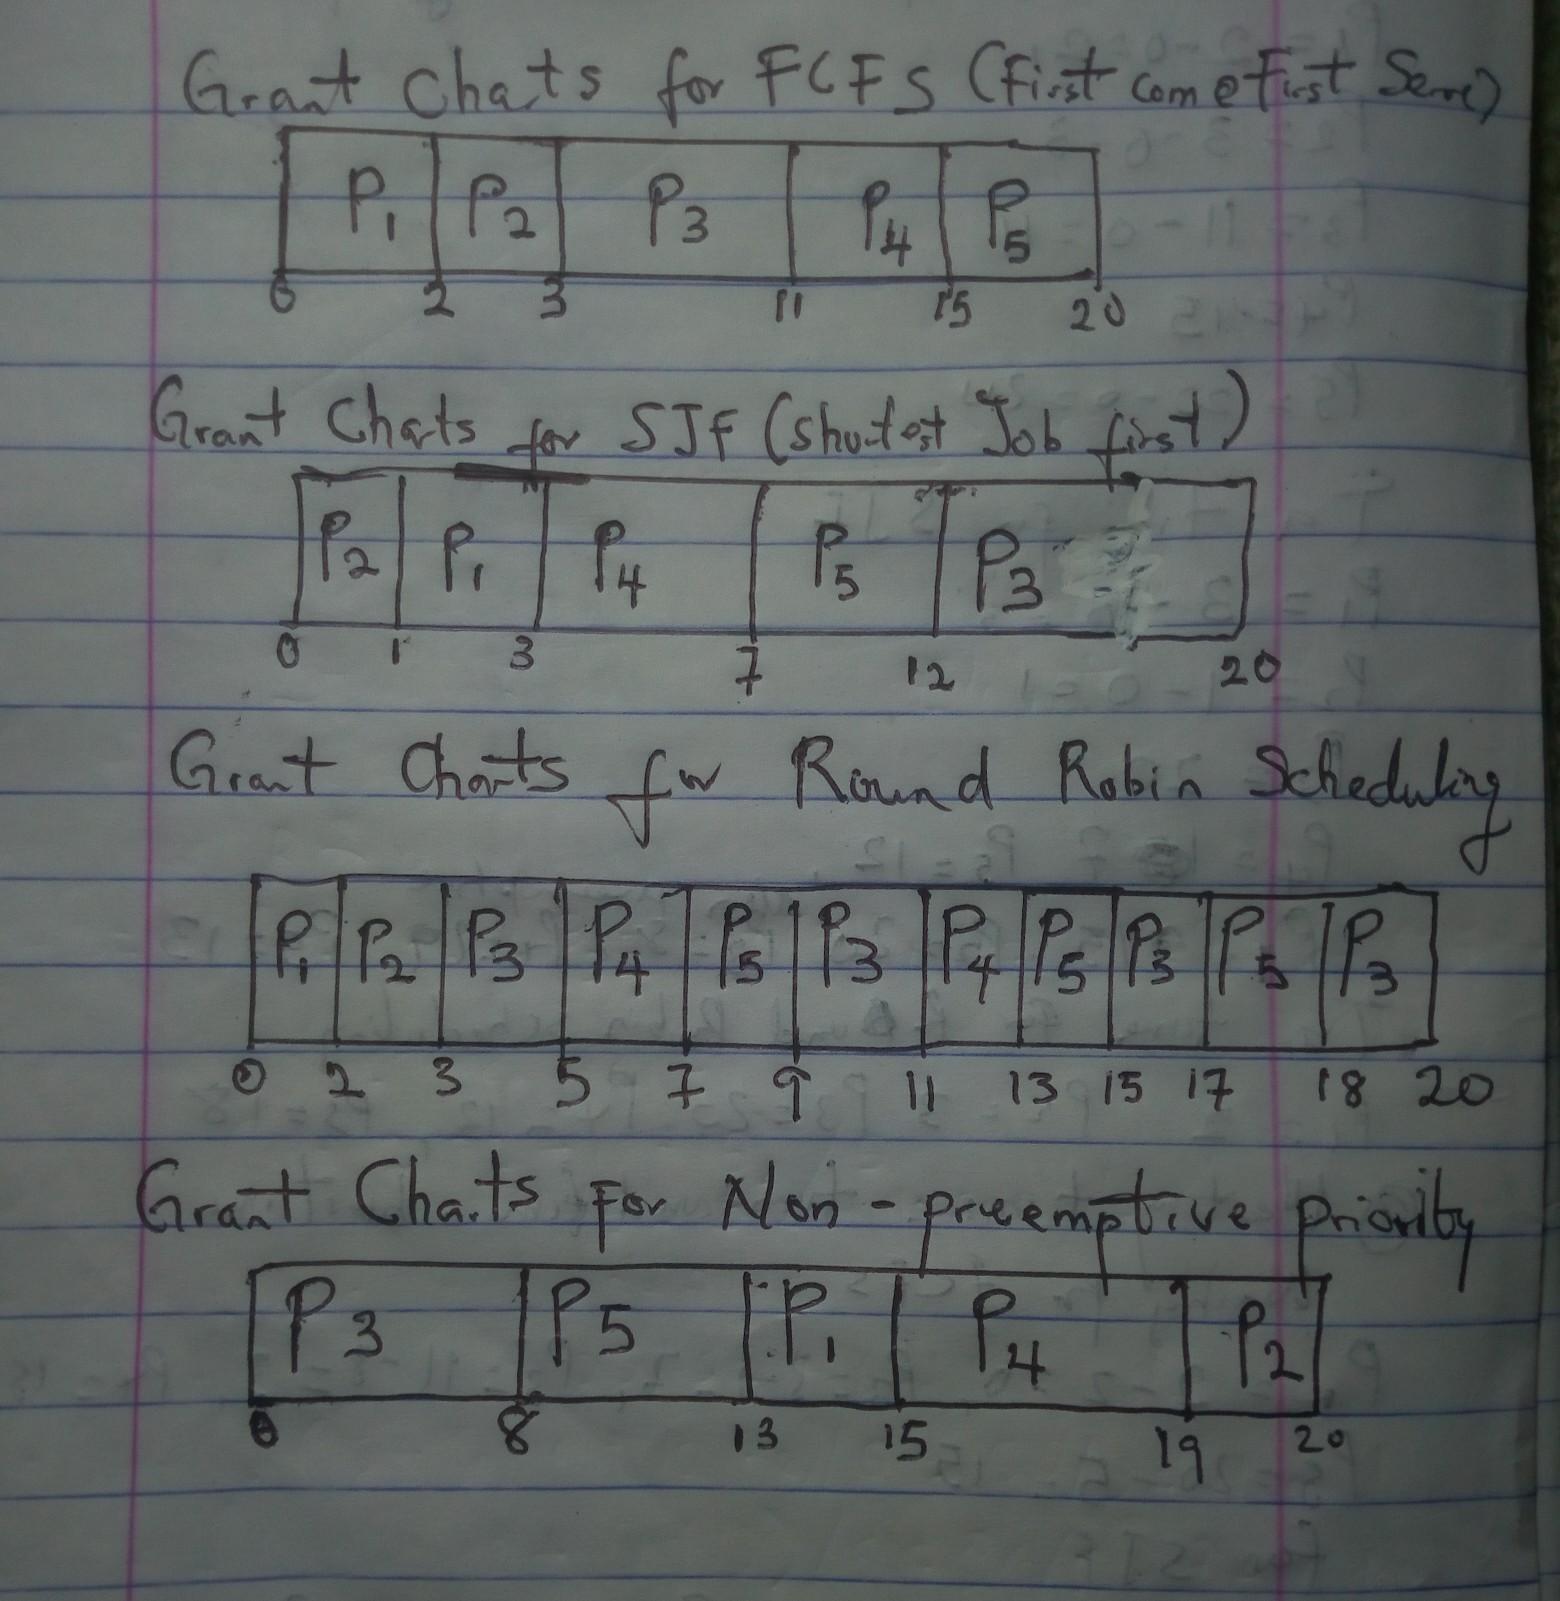 Grant Chats for FCFS (First come First Serve)
P1 P2 P3 P4 P5
0 2 3 11 15 20
Grant Charts for SJF (Shortest Job first)
P2 P1 P4 P5 P3
0 1 3 7 12 20
Grant Charts for Round Robin Scheduling
P1 P2 P3 P4 P5 P3 P4 P5 P3 P5 P3
0 2 3 5 7 9 11 13 15 17 18 20
Grant Charts For Non-preemptive priority
P3 P5 P1 P4 P2
0 8 13 15 19 20